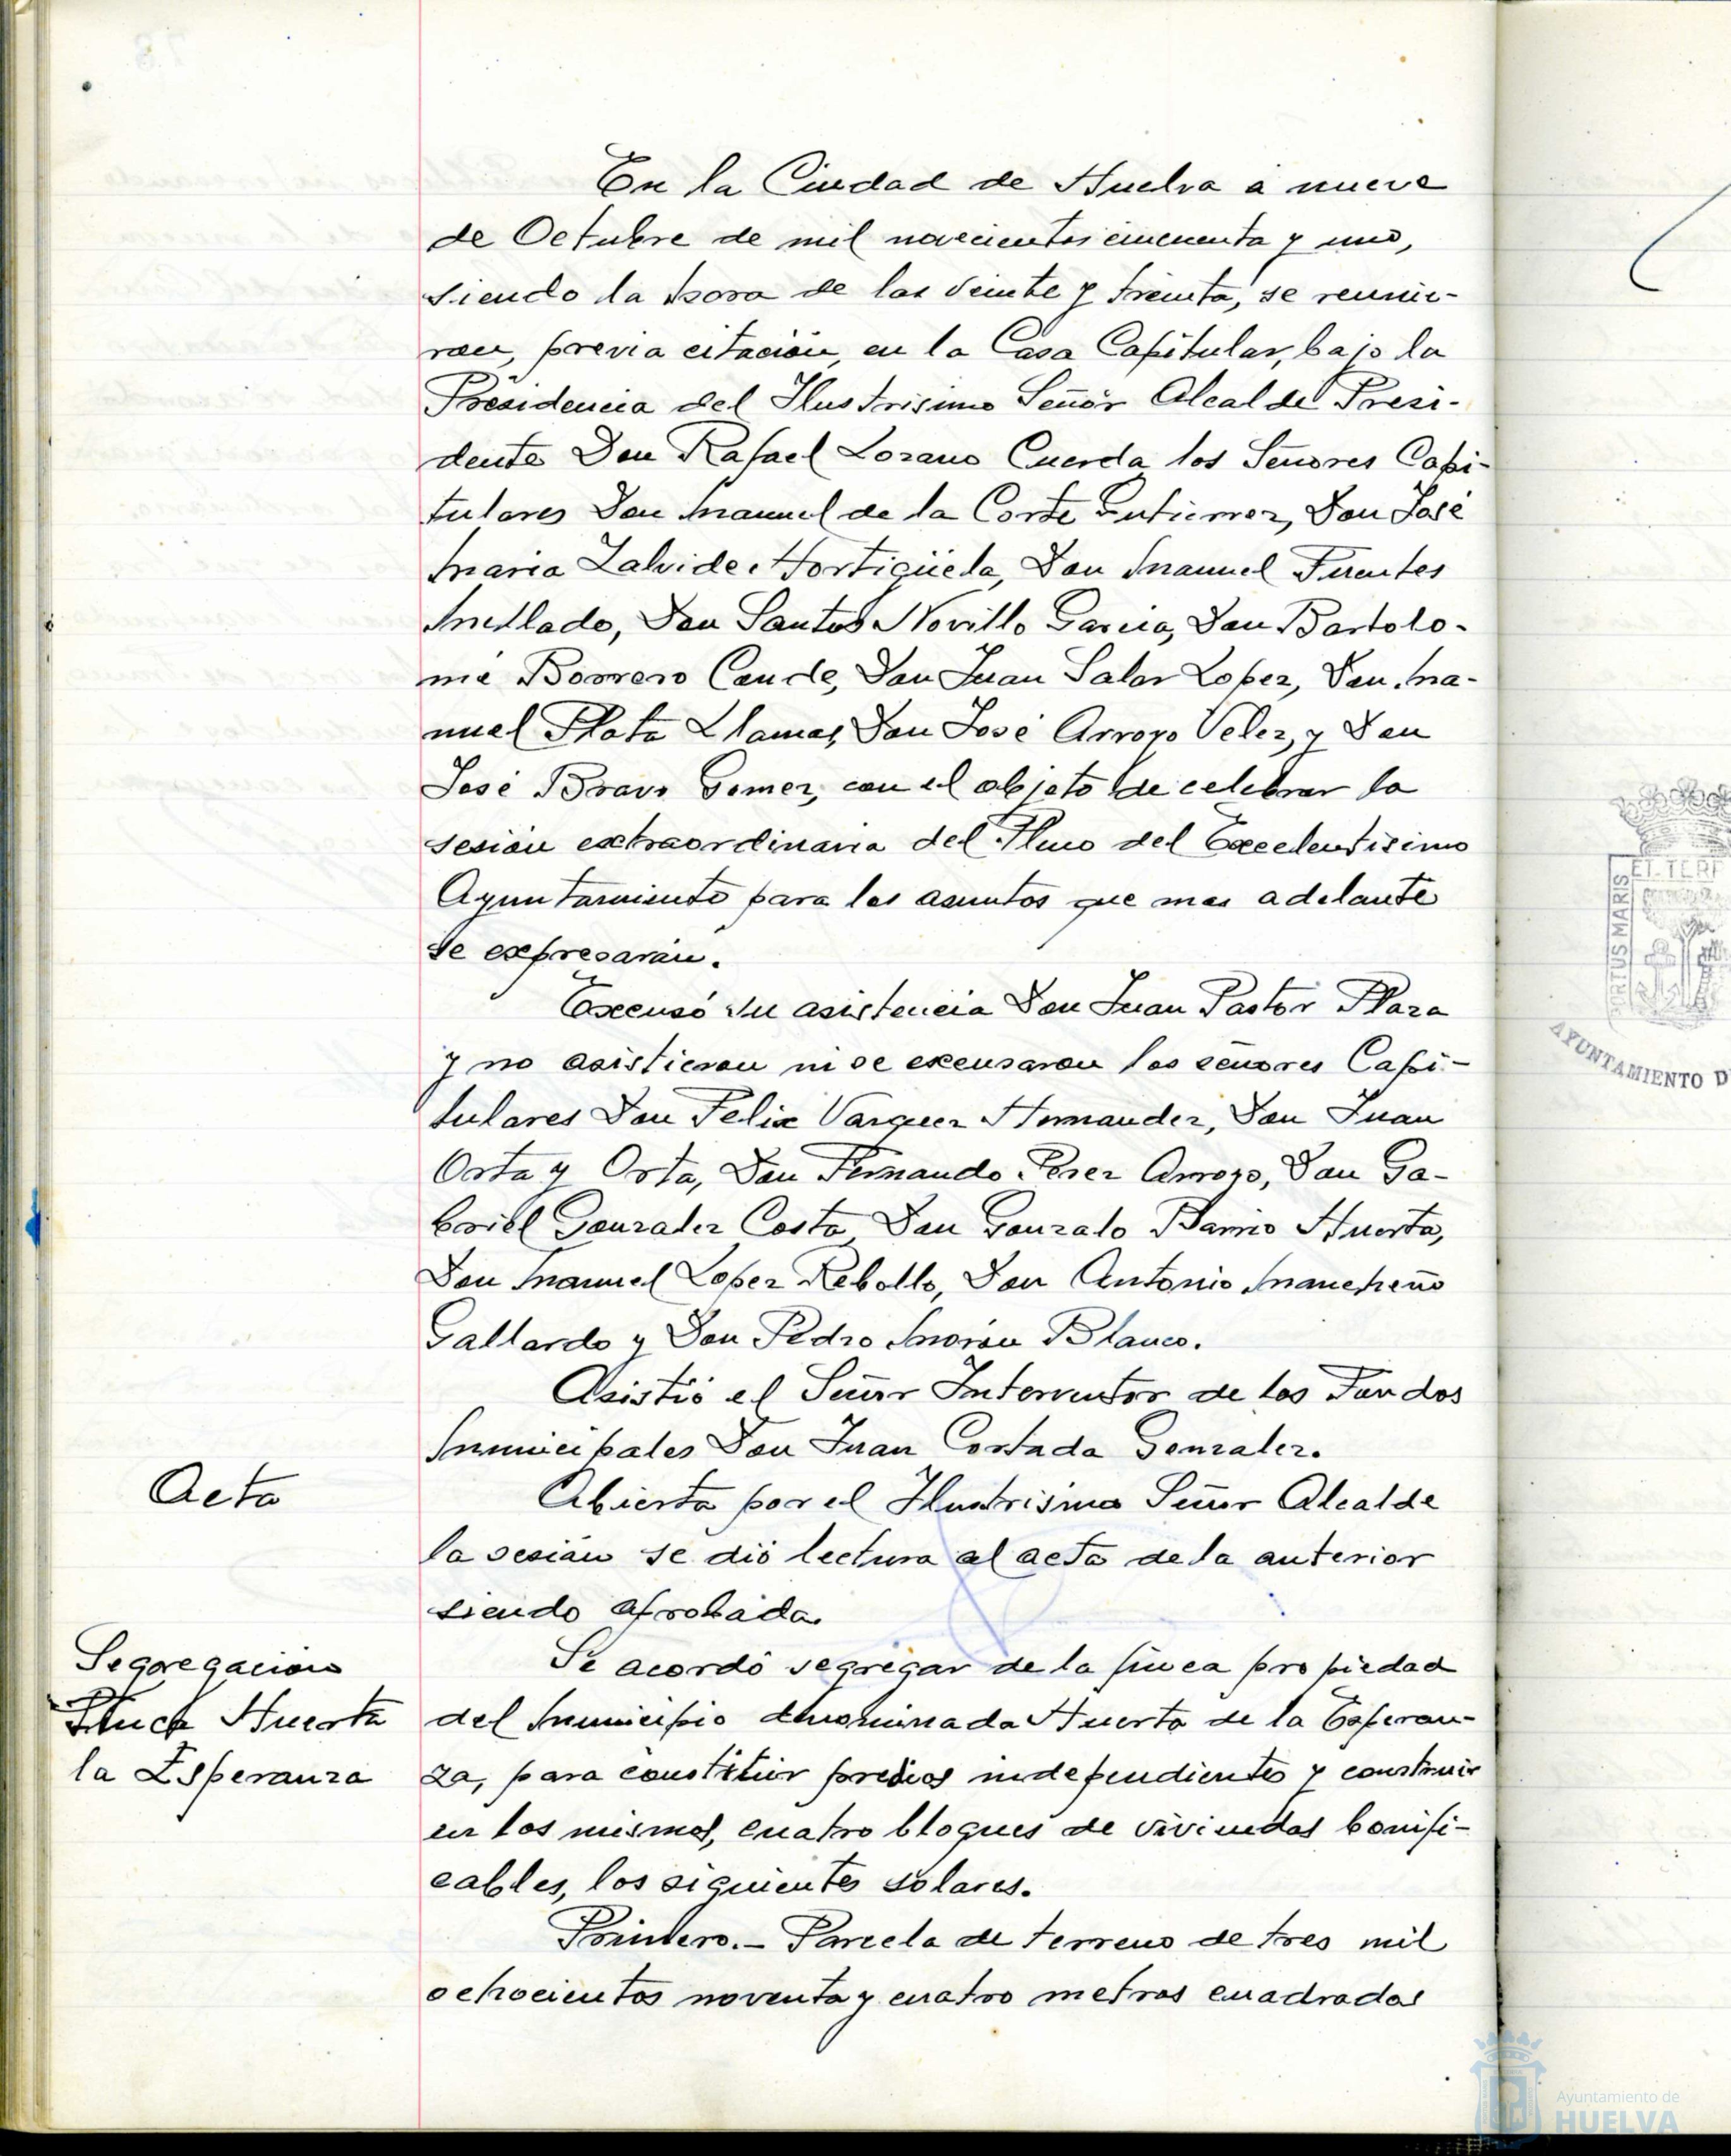 En la Ciudad de Huelva a nueve
de Octubre de mil novecientos cincuenta y uno,
siendo la hora de las veinte y treinta, se reunie-
ron, previa citación, en la Casa Capitular, bajo la
Presidencia del Ilustrisimo Señor Alcalde Presi-
dente Don Rafael Lozano Cuerda los Señores Capi-
tulares Don Manuel de la Corte Gutierrez, Don José
Maria Zalvide Hortigüela, Don Manuel Fuentes
Mellado, Don Santos Novillo Garcia, Don Bartolo-
mé Borrero Conde, Don Juan Salas Lopez, Don Ma-
nuel Plata Llamas, Don José Arroyo Velez, y Don
José Bravo Gomez, con el objeto de celebrar la
sesión extraordinaria del Pleno del Excelentisimo
Ayuntamiento para los asuntos que mas adelante
se expresarán.
Excusó su asistencia Don Juan Pastor Plaza
y no asistieron ni se excusaron los señores Capi-
tulares Don Felix Vazquez Hernandez, Don Juan
Orta y Orta, Don Fernando Perez Arroyo, Don Ga-
briel Gonzalez Costa, Don Gonzalo Barrio Huerta,
Don Manuel Lopez Rebollo, Don Antonio Mancheño
Gallardo y Don Pedro Morón Blanco.
Asistió el Señor Interventor de los Fondos
Municipales Don Juan Cortada Gonzalez.
Acta
Abierta por el Ilustrisimo Señor Alcalde
la sesión se dió lectura al acta de la anterior
siendo aprobada.
Segregación
Finca Huerta
la Esperanza
Se acordó segregar de la finca propiedad
del Municipio denominada Huerta de la Esperan-
za, para constituir predios independientes y construir
en los mismos, cuatro bloques de viviendas bonifi-
cables, los siguientes solares.
Primero.- Parcela de terreno de tres mil
ochocientos noventa y cuatro metros cuadrados
ET TERR
PORTUS MARIS
AYUNTAMIENTO D
Ayuntamiento de
HUELVA